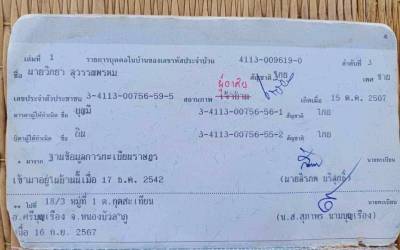 เล่มที่ 1 รายการบุคคลในบ้านของเลขรหัสประจำบ้าน 4113-009619-0 ลำดับที่ 3
ชื่อ นายวิทยา สุวรรณพรหม สัญชาติ ไทย เพศ ชาย
ผู้อาศัย
เลขประจำตัวประชาชน 3-4113-00756-59-5 สถานภาพ เกิดเมื่อ 15 ต.ค. 2507
มารดาผู้ให้กำเนิด ชื่อ บุญมี 3-4113-00756-56-1 สัญชาติ ไทย
บิดาผู้ให้กำเนิด ชื่อ ยิน 3-4113-00756-55-2 สัญชาติ ไทย
* มาจาก ฐานข้อมูลการทะเบียนราษฎร นายทะเบียน
เข้ามาอยู่ในบ้านนี้เมื่อ 17 ธ.ค. 2542
** ไปที่ 18/3 หมู่ที่ 1 ต.กุดสะเทียน นายทะเบียน
อ.ศรีบุญเรือง จ.หนองบัวลำภู (น.ส.สุภาพร นามบุญเรือง)
เมื่อ 16 ก.ย. 2567